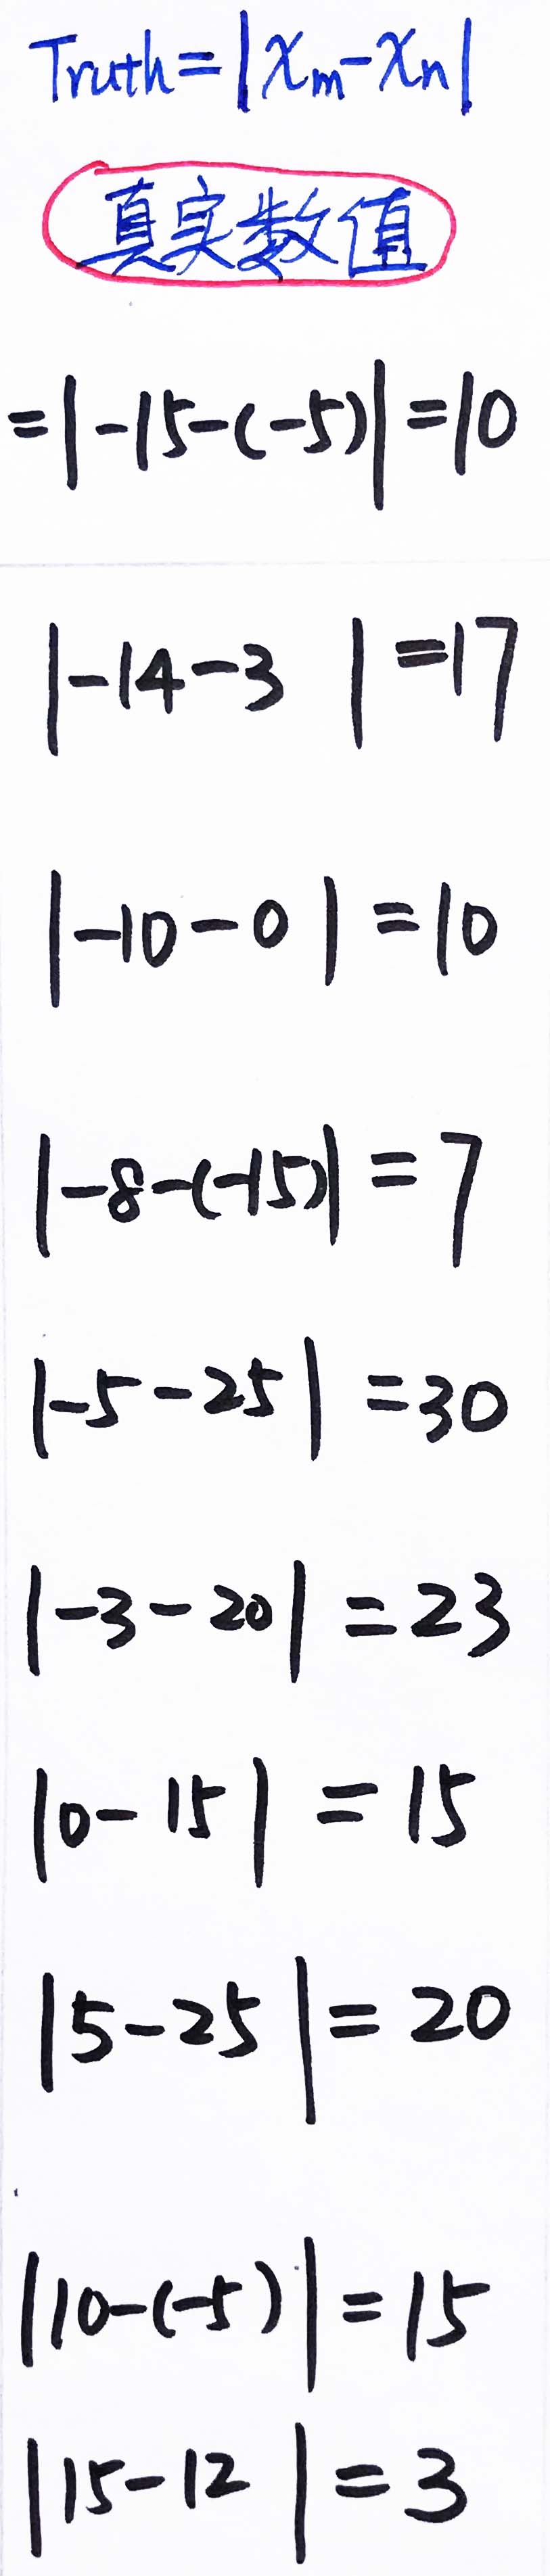 Truth=|xm-xn|
真实数值
=|-15-(-5)|=10
|-14-3 |=17
|-10-0|=10
|-8-(-15)|=7
|-5-25|=30
|-3-20|=23
|0-15|=15
|5-25|=20
|10-(-5)|=15
|15-12|=3